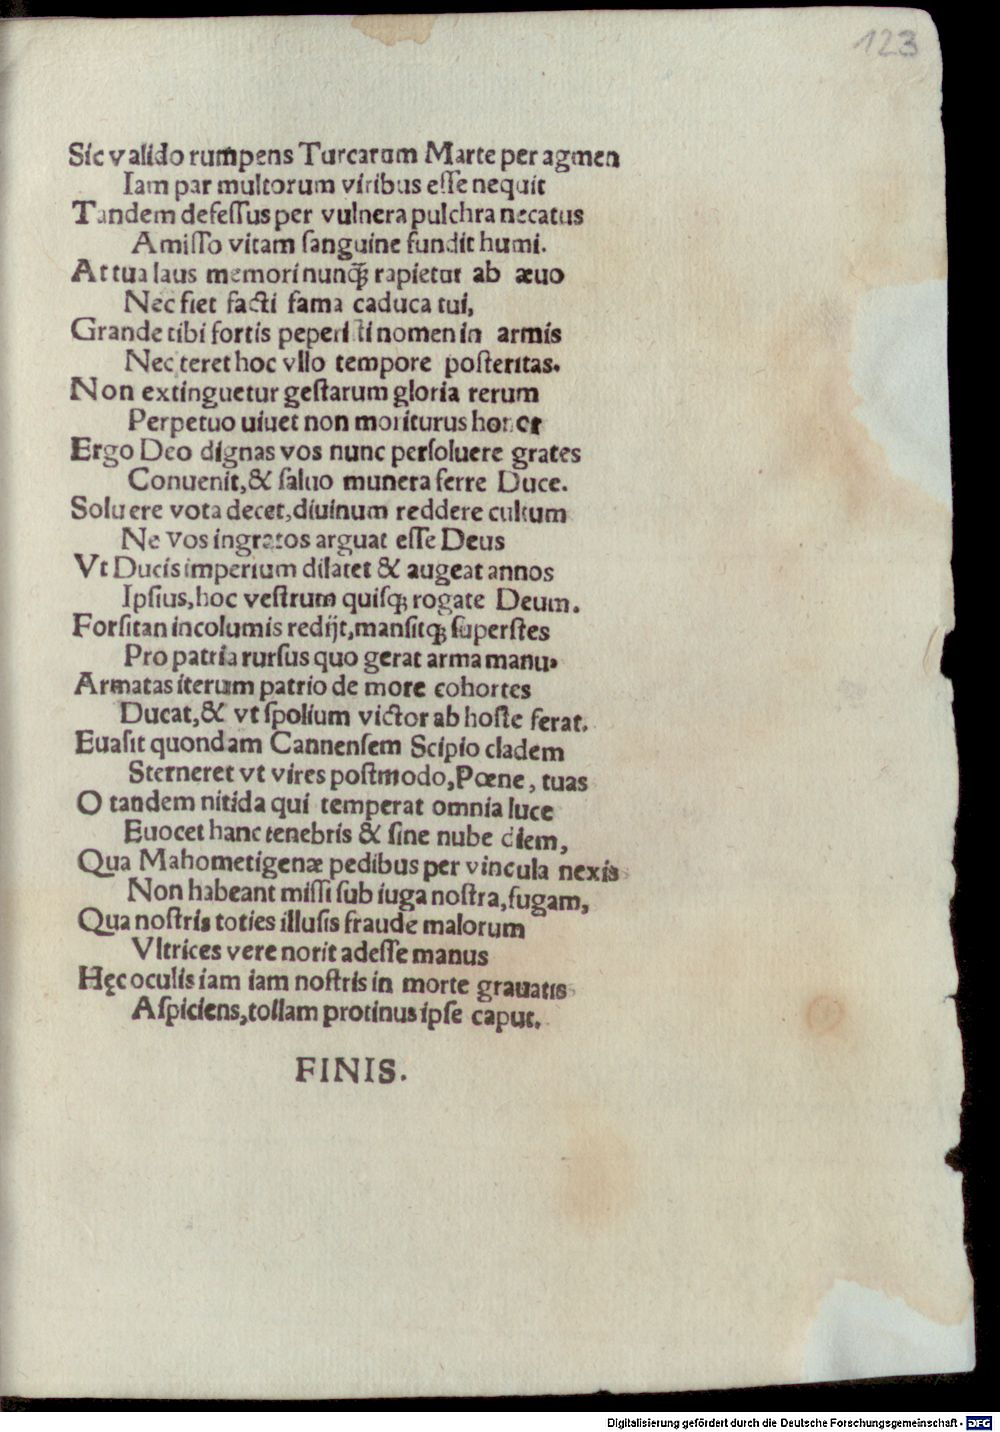 123
Sic valido rumpens Turcarum Marte per agmen
Iam par multorum viribus eſſe nequit
Tandem defeſſus per vulnera pulchra necatus
Amiſſo vitam ſanguine fundit humi.
At tua laus memori nunq̃ꝫ rapietur ab æuo
Nec fiet facti fama caduca tui,
Grande tibi fortis peperiſti nomen in armis
Nec teret hoc vllo tempore poſteritas.
Non extinguetur geſtarum gloria rerum
Perpetuo uiuet non moriturus honor
Ergo Deo dignas vos nunc perſoluere grates
Conuenit, & ſaluo munera ferre Duce.
Soluere vota decet, diuinum reddere cultum
Ne vos ingratos arguat eſſe Deus
Vt Ducis imperium dilatet & augeat annos
Ipſius, hoc veſtrum quiſqꝫ rogate Deum.
Forſitan incolumis redijt, manſitqꝫ ſuperſtes
Pro patria rurſus quo gerat arma manu,
Armatas iterum patrio de more cohortes
Ducat, & vt ſpolium victor ab hoſte ferat.
Euaſit quondam Cannenſem Scipio cladem
Sterneret vt vires poſtmodo, Pœne, tuas
O tandem nitida qui temperat omnia luce
Euocet hanc tenebris & ſine nube diem,
Qua Mahometigenæ pedibus per vincula nexis
Non habeant miſſi ſub iuga noſtra, fugam,
Qua noſtris toties illuſis fraude malorum
Vltrices vere norit adeſſe manus
Hęc oculis iam iam noſtris in morte grauatis
Aſpiciens, tollam protinus ipſe caput.
FINIS.
Digitalisierung gefördert durch die Deutsche Forschungsgemeinschaft - DFG